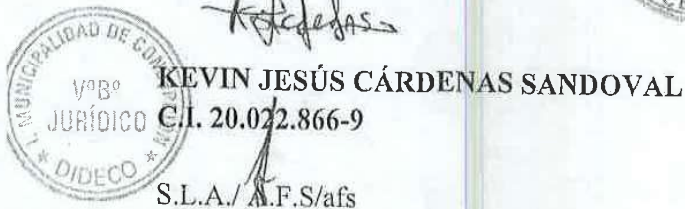 I. MUNICIPALIDAD DE
VºBº
JURÍDICO
DIDECO
KEVIN JESÚS CÁRDENAS SANDOVAL
C.I. 20.022.866-9
S.L.A./ A.F.S/afs